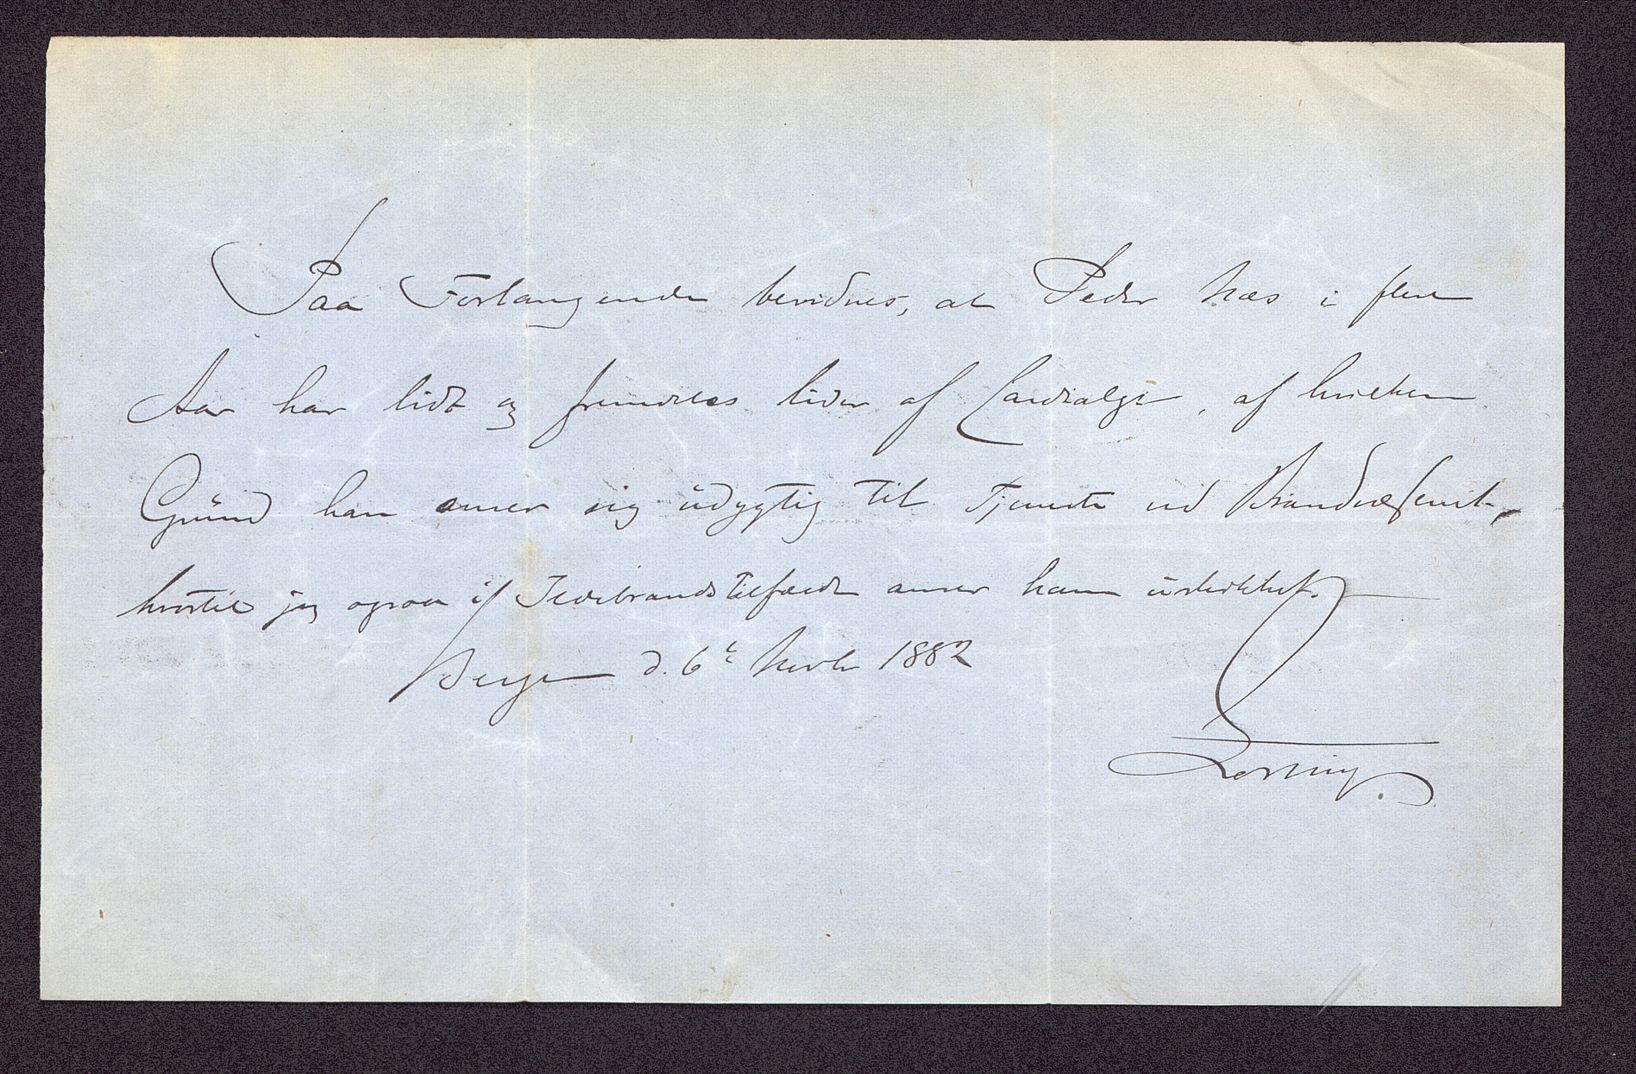 Paa Forlangende bevidnes, at Peder Næs i flere
Aar har lidt og fremdeles lider af Cardialgi, af hvilken
Grund han anser sig udygtig til Tjeneste ved Brandvæsenet,
hvortil jeg ogsaa i Ildebrandstilfælde anser ham uskikket.
Bergen d. 6te Novbr 1882